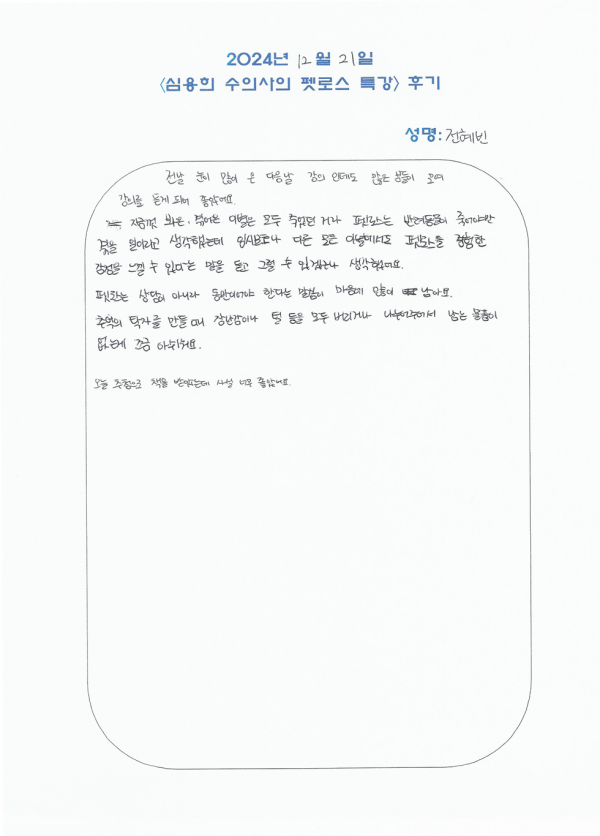 2024년 12월 21일
<심용희 수의사의 펫로스 특강> 후기
성명: 전혜빈
전날 눈이 많이 온 다음날 강의 인데도 많은 분들이 모여
강의를 듣게 되어 좋았어요.
지금껏 봐온, 겪어온 이별은 모두 죽었던 거나 펫로스는 반려동물이 죽어야만
겪을 일이라고 생각했는데 임시보호나 다른 모든 이별에서도 펫로스를 경험한
감정을 느낄 수 있다는 말을 듣고 그럴 수 있겠구나 생각했어요.
펫로스는 상담이 아니라 동반되어야 한다는 말씀이 마음에 많이 남아요.
추억의 탁자를 만들 때 장난감이나 털 등을 모두 버리거나 나누어주어서 남는 물품이
없는게 조금 아쉬워요.
오늘 추첨으로 책을 받았는데 사실 너무 좋았어요.